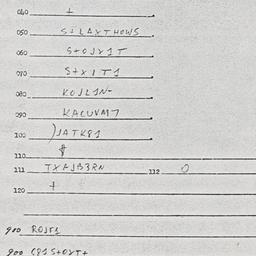 040 ⊥
050 S+LAXTHOWS
060 S+OJX1T
070 S+XIT1
080 KOJL1N-
090 KACUVM7
100 )JATK81
110
111 TXFJB3RN 112 0
120 +
900 ROJT1
900 (81S+OXT+